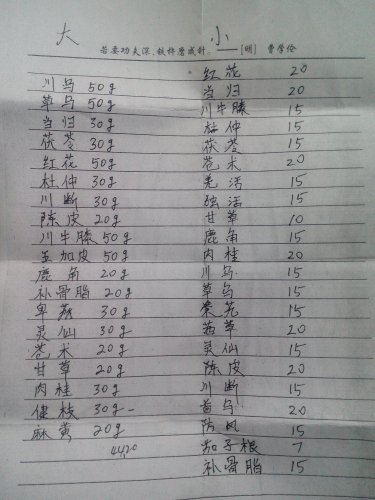 大
小
若要功夫深,铁杵磨成针。——[明] 曹学佺
川乌 50g
草乌 50g
当归 30g
茯苓 30g
红花 50g
杜仲 30g
川断 30g
陈皮 20g
川牛膝 50g
五加皮 50g
鹿角 20g
补骨脂 20g
草薢 30g
灵仙 30g
苍术 20g
甘草 20g
肉桂 30g
健枝 30g
麻黄 20g
红花 20
当归 20
川牛膝 15
杜仲 15
茯苓 15
苍术 20
羌活 15
独活 15
甘草 10
鹿角 15
肉桂 20
川乌 15
草乌 15
15
20
灵仙 15
陈皮 20
川断 15
首乌 20
防风 15
茄子根 7
补骨脂 15